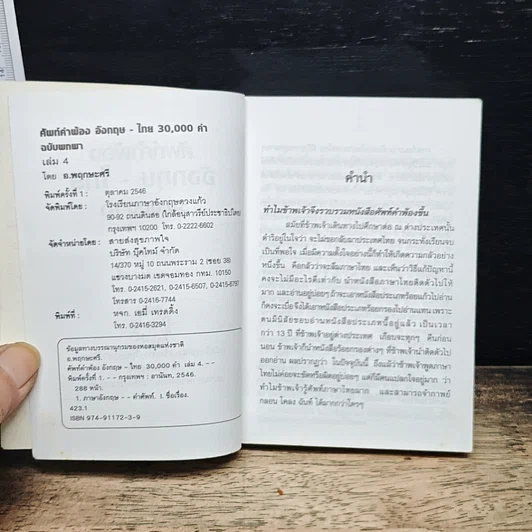 ศัพท์คำพ้อง อังกฤษ - ไทย 30,000 คำ
ฉบับพกพา
เล่ม 4
โดย อ.พฤกษะศรี
พิมพ์ครั้งที่ 1 : ตุลาคม 2546
จัดพิมพ์โดย : โรงเรียนภาษาอังกฤษดวงแก้ว
90-92 ถนนดินสอ (ใกล้อนุสาวรีย์ประชาธิปไตย)
กรุงเทพฯ 10200 โทร 0-2222-6602
จัดจำหน่ายโดย : สายส่งสุขภาพใจ
บริษัท บุ๊คไทม์ จำกัด
14/370 หมู่ 10 ถนนพระราม 2 (ซอย 38)
แขวงบางมด เขตจอมทอง กทม. 10150
โทร. 0-2415-2621, 0-2415-6507,
โทรสาร 0-2416-7744
พิมพ์ที่ : หจก. เอมี่ เทรดดิ้ง
โทร 0-2416-3294
ข้อมูลทางบรรณานุกรมของหอสมุดแห่งชาติ
อ.พฤกษะศรี.
ศัพท์คำพ้อง อังกฤษ - ไทย 30,000 คำ เล่ม 4. - -
พิมพ์ครั้งที่ 1. - - กรุงเทพฯ : อานันท, 2546.
288 หน้า.
1. ภาษาอังกฤษ - - คำศัพท์. I. ชื่อเรื่อง.
423.1
ISBN 974-91172-3-9
คำนำ
ทำไมข้าพเจ้าจึงรวบรวมหนังสือศัพท์คำพ้องขึ้น
สมัยที่ข้าพเจ้าเดินทางไปศึกษาต่อ ณ ต่างประเทศนั้น
ดำริอยู่ในใจว่า จะไม่ขอกลับมาประเทศไทย จนกระทั่งเรียนจบ
เป็นที่พอใจ เมื่อมีความตั้งใจอย่างนี้ก็ทำให้เกิดความกลัวอย่าง
หนึ่งขึ้น คือกลัวว่าจะลืมภาษาไทย และเห็นว่าวิธีแก้ปัญหานี้
คงจะไม่มีอะไรดีเท่ากับ นำหนังสือภาษาไทยติดตัวไปให้
มาก และอ่านอยู่บ่อยๆ ถ้าจะเอาหนังสือประเภทร้อยแก้วไปอ่าน
ก็คงจะเบื่อจึงได้เอาหนังสือประเภทร้อยกรองไปอ่านแทน เพราะ
ตนมีนิสัยชอบอ่านหนังสือประเภทนี้อยู่แล้ว เป็นเวลา
กว่า 13 ปี ที่ข้าพเจ้าอยู่ต่างประเทศ เกือบจะทุกๆ คืนก่อน
นอน ข้าพเจ้าก็นำหนังสือร้อยกรองต่างๆ ที่ข้าพเจ้านำติดตัวไป
ออกอ่าน ผลปรากฏว่า ในปัจจุบันนี้ ถึงแม้ว่าข้าพเจ้าพูดภาษา
ไทยไม่ค่อยจะชัดหรือผิดอยู่บ่อยๆ แต่ก็มีคนแปลกใจอยู่มาก ว่า
ทำไมข้าพเจ้ารู้ศัพท์ภาษาไทยมาก และสามารถจำกาพย์
กลอน โคลง ฉันท์ ได้มากกว่าใครๆ